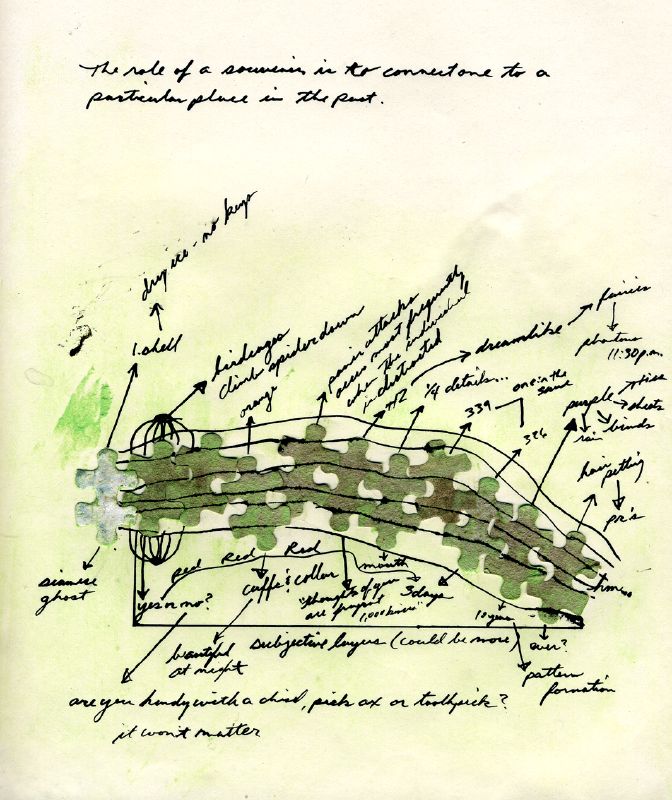 The role of a souvenir is to connect one to a
particular place in the past.
dry ice - no keys
1. shell
birdcages
climb spider down
orange
panic attacks
occur most frequently
when the individual
is distracted
#2
dreamlike
fairies
photos
11:30 p.m.
1/4 details...
339
one in the
same
326
purple
rise
sheets
rain
blinds
hair
petting
pr's
siamese
ghost
yes or no?
Red Red Red
cuffs & collar
"thoughts of you
are
1,000 hours"
mouth
3 days
10 years
ever?
time...
beautiful
at night
subjective layers (could be more)
pattern
formation
are you handy with a chisel, pick ax or toothpick?
it won't matter